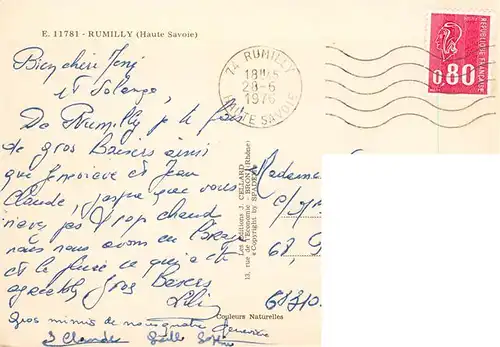 E. 11781 - RUMILLY (Haute Savoie)
74 RUMILLY
18H45
28-6
1976
HAUTE SAVOIE
REPUBLIQUE FRANCAISE
0,80
Bien chère
et Solange,
De Rumilly je te fais
de gros Baisers ainsi
que Geneviève et Jean
Claude, que vous
n'avez pas trop chaud
nous nous avons eu
et la pluie ce qui a été
agréable Gros Baisers
Lili
Gros mimis de nous quatre Geneviève
J Claude Gaëlle
Les éditions J. CELLARD
13, rue de l'Economie - BRON (Rhône)
« Copyright by SPADEM »
Mademoi
68
68310
Couleurs Naturelles